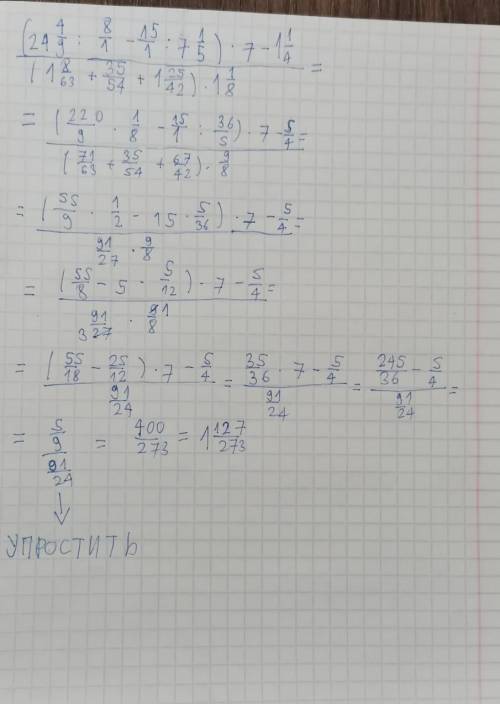 (24 4/9 : 8/1 - 15/1 : 7 1/5) · 7 - 1 1/4
(1 8/63 + 35/54 + 1 25/42) · 1 1/8 =
= (220/9 · 1/8 - 15/1 : 36/5) · 7 - 5/4 =
(71/63 + 35/54 + 67/42) · 9/8
= (55/9 · 1/2 - 15 · 5/36) · 7 - 5/4 =
91/27 · 9/8
= (55/8 - 5 · 5/12) · 7 - 5/4 =
3 91/27 · 9 1/8
= (55/18 - 25/12) · 7 - 5/4 = 35/36 · 7 - 5/4 = 245/36 - 5/4 =
91/24 91/24 91/24
= 5/9 = 400/273 = 1 127/273
91/24
↓
УПРОСТИТЬ